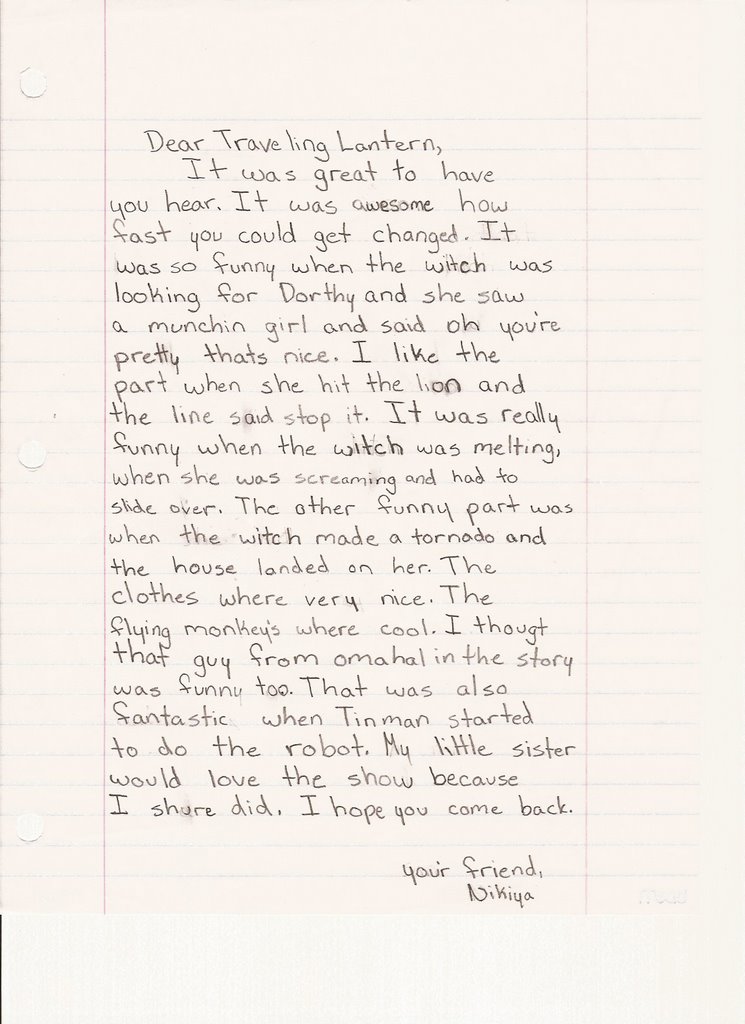 Dear Traveling Lantern,
It was great to have
you hear. It was awesome how
fast you could get changed. It
was so funny when the witch was
looking for Dorthy and she saw
a munchin girl and said oh you're
pretty thats nice. I like the
part when she hit the lion and
the line said stop it. It was really
funny when the witch was melting,
when she was screaming and had to
slide over. The other funny part was
when the witch made a tornado and
the house landed on her. The
clothes where very nice. The
flying monkey's where cool. I thougt
that guy from omahal in the story
was funny too. That was also
fantastic when Tinman started
to do the robot. My little sister
would love the show because
I shure did. I hope you come back.
your friend,
Nikiya